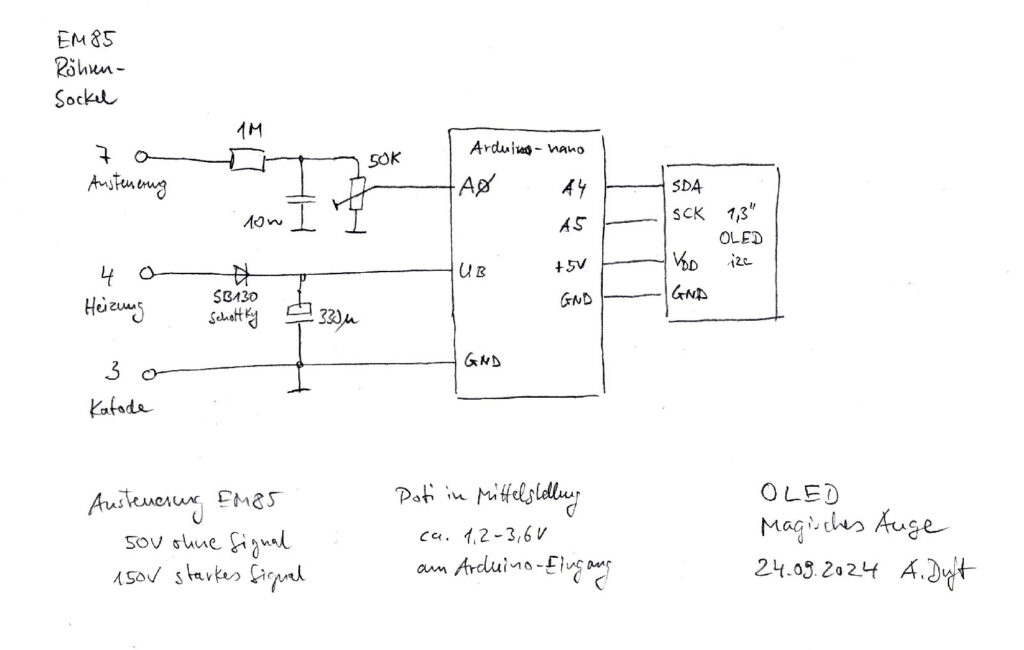 EM85
Röhren-
Sockel
1M
7
Ansteuerung
50K
10n
Arduino-nano
AØ
A4
SDA
A5
SCK
1,3"
OLED
i2c
4
Heizung
SB130
Schottky
330µ
UB
+5V
VDD
GND
GND
3
Katode
GND
Ansteuerung EM85
50V ohne Signal
150V starkes Signal
Poti in Mittelstellung
ca. 1,2-3,6V
am Arduino-Eingang
OLED
Magisches Auge
24.09.2024 A.